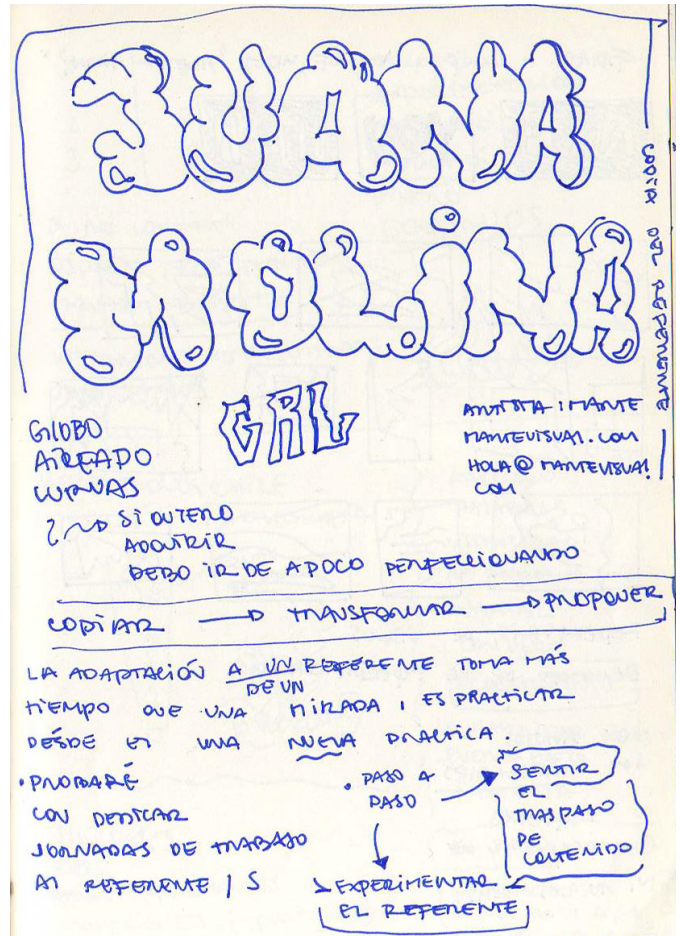 JUANA
MOLINA
COPIA DEL REFERENTE
GRL
GLOBO
AIREADO
CURVAS
ANTISTA : MANTE
MANTEVISUAL.COM
HOLA@MANTEVISUAL
COM
SI QUIERO
ADQUIRIR
DEBO IR DE A POCO PERFECCIONANDO
COPIAR → TRANSFORMAR → PROPONER
LA ADAPTACIÓN A UN REFERENTE TOMA MÁS
DE UN
TIEMPO QUE UNA MIRADA, ES PRACTICAR
DESDE ET UNA NUEVA PRACTICA.
• PROBARÉ
CON DEDICAR
JORNADAS DE TRABAJO
AL REFERENTE / S
• PASO A
PASO
SENTIR
EL
TRASPASO
DE
CONTENIDO
EXPERIMENTAR
EL REFERENTE